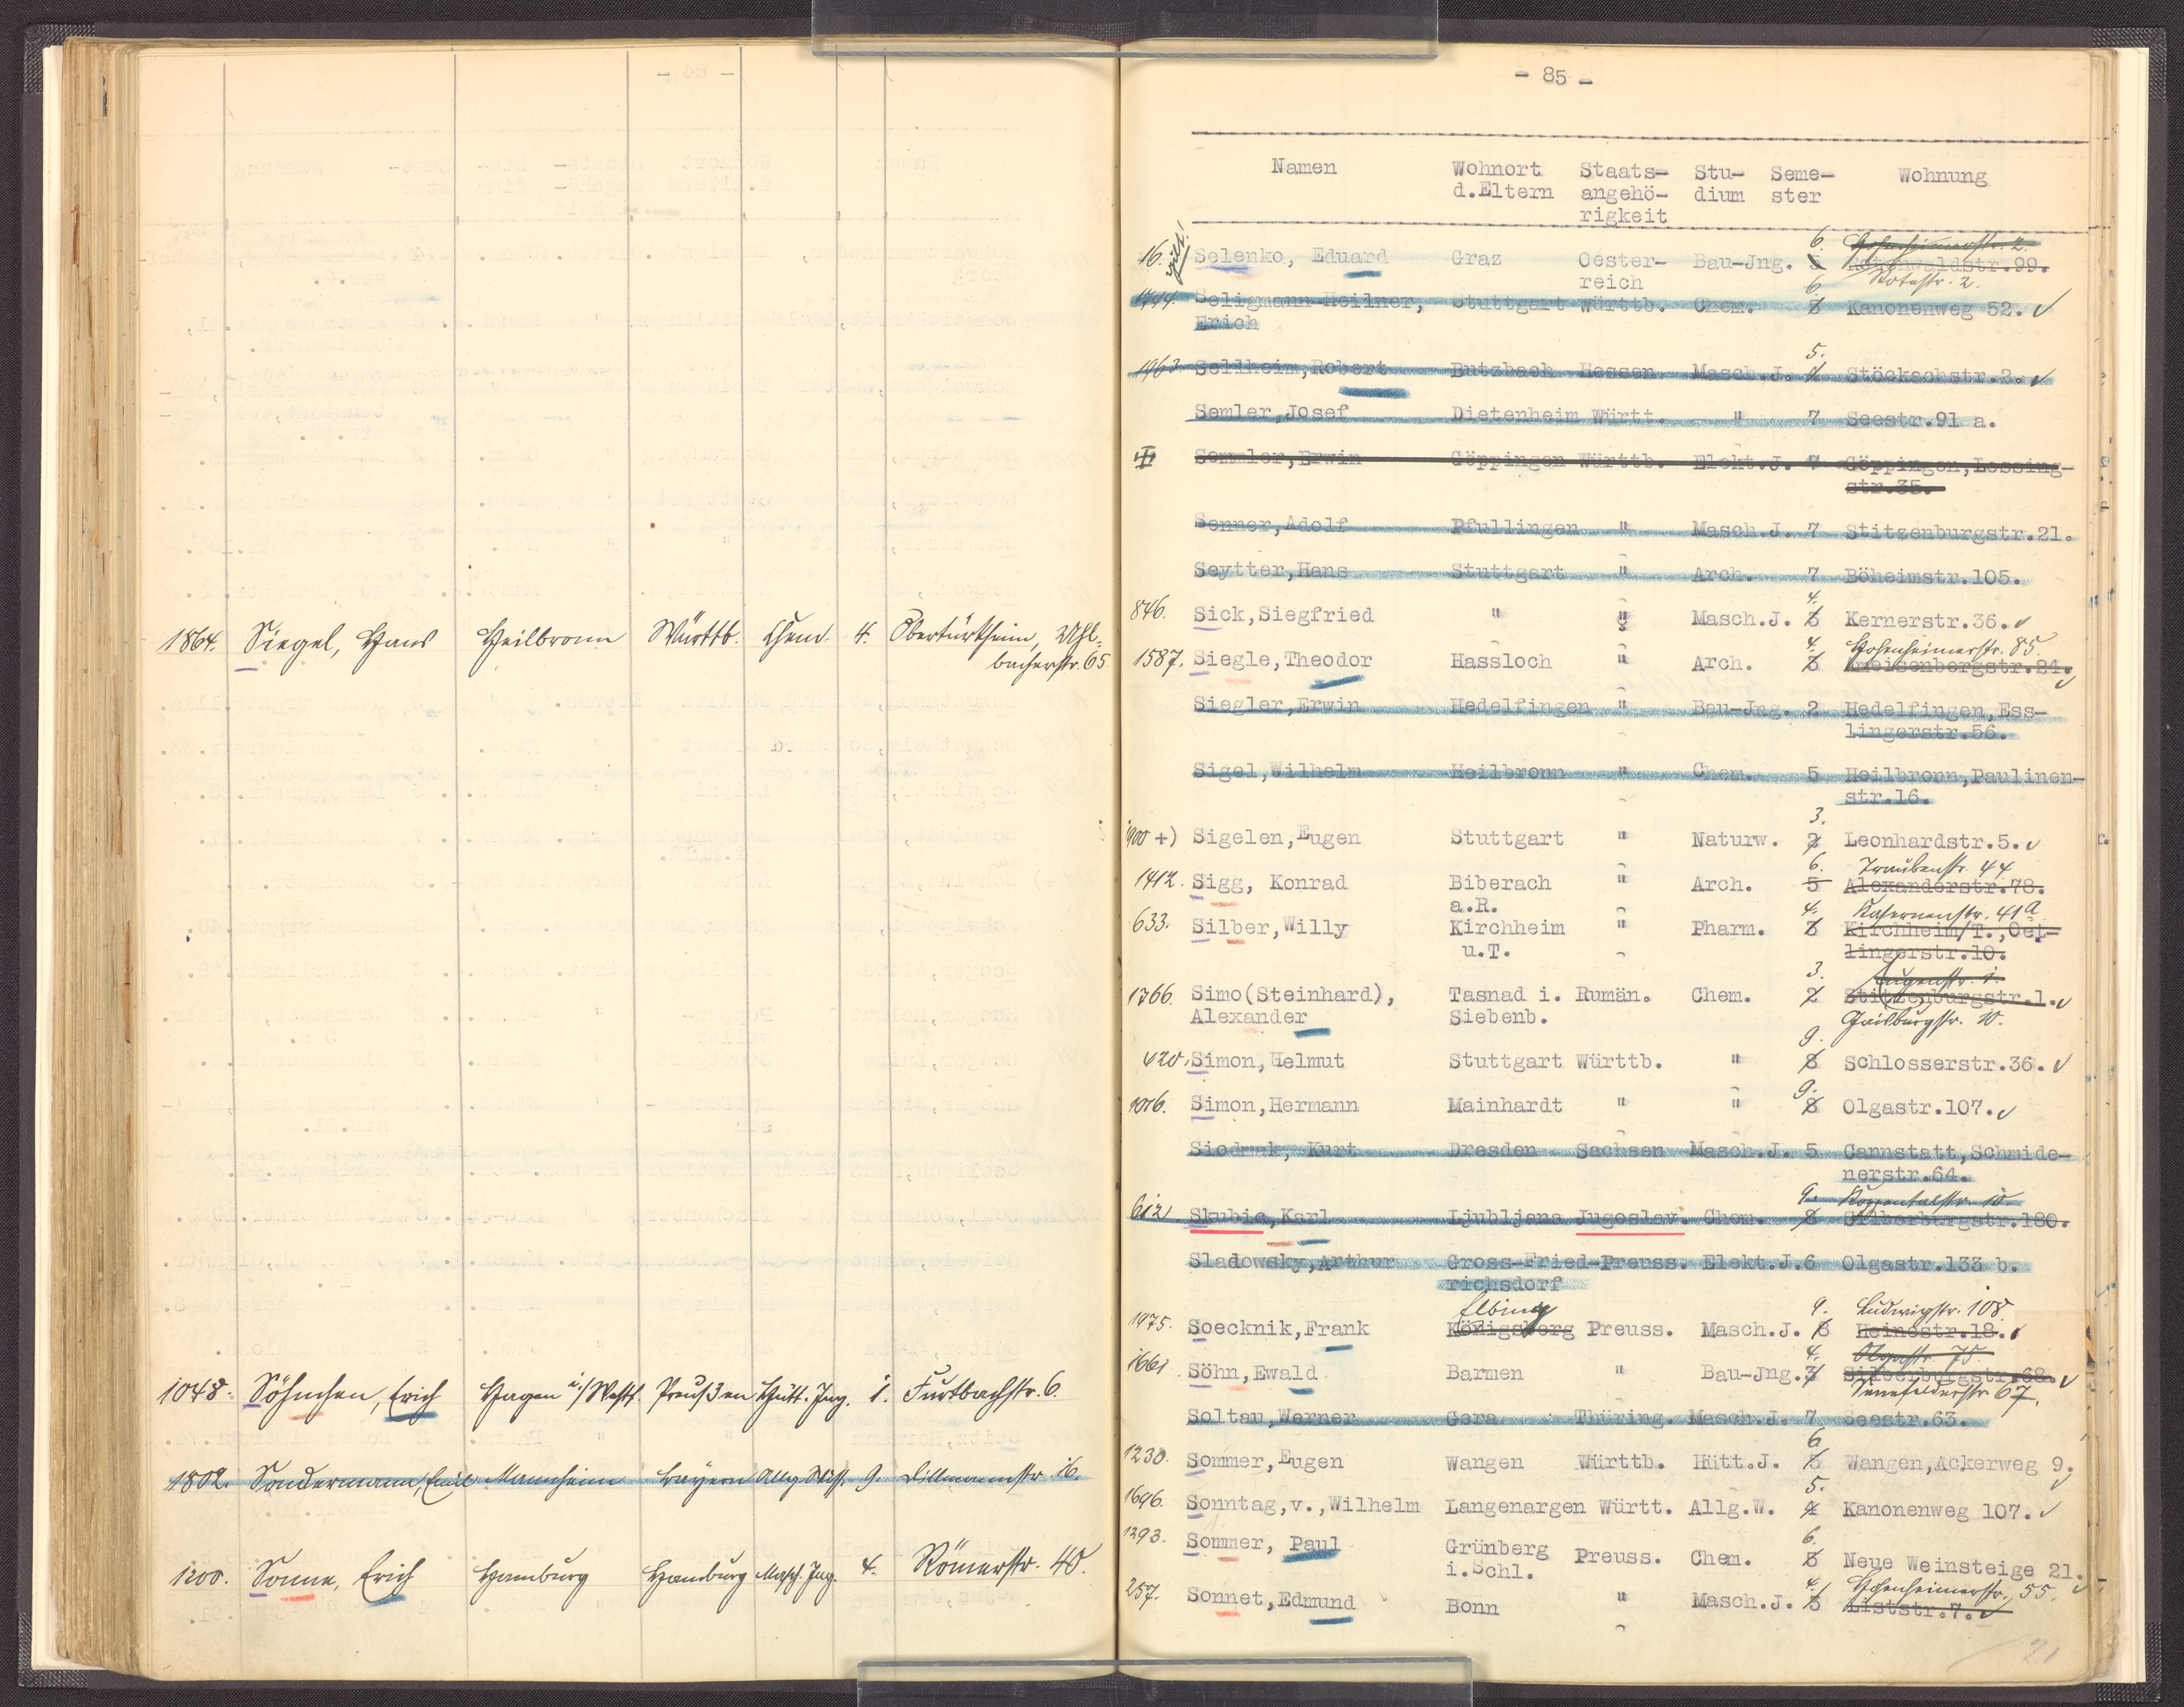 1864. Siegel, Hans Heilbronn Württb. Chem. 4. Obertürkheim, Uhl-
bacherstr. 65
1048. Söhnchen, Erich Hagen i/Westf. Preußen Hütt. Ing. 1. Furtbachstr. 6.
1802. Sondermann, Emil Mannheim Bayern Allg. Wiss. 9. Dillmannstr. 16.
1200. Sonne, Erich Hamburg Hamburg Masch. Ing. 4. Römerstr. 40.
- 85 -
Namen Wohnort Staats- Stu- Seme- Wohnung
d.Eltern angehö- dium ster
rigkeit
6. Hohenheimerstr. 2.
16. gilt! Selenko, Eduard Graz Oester- Bau-Jng. Rotenwaldstr.99.
reich Rotestr. 2.
6.
1744. Seligmann-Heilner, Stuttgart Württb. Chem. Kanonenweg 52.
Erich
5.
1963. Sellheim, Robert Butzbach Hessen Masch.J. 4 Stöckachstr.3.
Semler,Josef Dietenheim Württ. " 7 Seestr.91 a.
Semmler,Erwin Göppingen Württb. Elekt.J. 7 Göppingen,Lessing-
str.35.
Senner,Adolf Pfullingen " Masch.J. 7 Stitzenburgstr.21.
Seytter,Hans Stuttgart " Arch. 7 Böheimstr.105.
4.
846. Sick,Siegfried " " Masch.J. 3 Kernerstr.36.
4. Hohenheimerstr. 85.
1587. Siegle,Theodor Hassloch " Arch. 3 Ameisenbergstr.24.
Siegler,Erwin Hedelfingen " Bau-Jng. 2 Hedelfingen,Ess-
lingerstr.56.
Sigel,Wilhelm Heilbronn " Chem. 5 Heilbronn,Paulinen-
str.16.
3.
1900 +) Sigelen,Eugen Stuttgart " Naturw. 2 Leonhardstr.5.
6. Traubenstr. 44
1412. Sigg, Konrad Biberach " Arch. 5 Alexanderstr.78.
a.R.
4. Kasernenstr. 41a
633. Silber,Willy Kirchheim " Pharm. 3 Kirchheim/T.,Oet-
u.T. lingerstr.10.
3. Eugenstr. 1.
1766. Simo(Steinhard), Tasnad i. Rumän. Chem. 2 Stitzenburgstr.1.
Alexander Siebenb. Gaisburgstr. 10.
9.
420. Simon,Helmut Stuttgart Württb. " 8 Schlosserstr.36.
9.
1016. Simon,Hermann Mainhardt " " 8 Olgastr.107.
Siodmak, Kurt Dresden Sachsen Masch.J. 5 Cannstatt,Schmide-
nerstr.64.
9. Koppentalstr. 10.
612 Skubie,Karl Ljubljana Jugoslav. Chem. 8 Silberburgstr.180.
Sladowsky,Arthur Gross-Fried-Preuss. Elekt.J.6 Olgastr.133 b.
richsdorf
Elbing 9. Ludwigstr. 108
1975. Soecknik,Frank Königsberg Preuss. Masch.J. 8 Heinestr.18.
4. Olgastr. 75.
1661 Söhn,Ewald Barmen " Bau-Jng.3 Silberburgstr.68.
Senefelderstr. 67.
Soltau,Werner Gera Thüring. Masch.J. 7 Seestr.63.
6
1230. Sommer,Eugen Wangen Württb. Hütt.J. 5 Wangen,Ackerweg 9.
5.
1696. Sonntag,v.,Wilhelm Langenargen Württ. Allg.W. 4 Kanonenweg 107.
6.
1393. Sommer, Paul Grünberg Preuss. Chem. 5 Neue Weinsteige 21.
i.Schl.
4. Hohenheimerstr. 55.
257. Sonnet,Edmund Bonn " Masch.J. 3 Liststr.7.
21